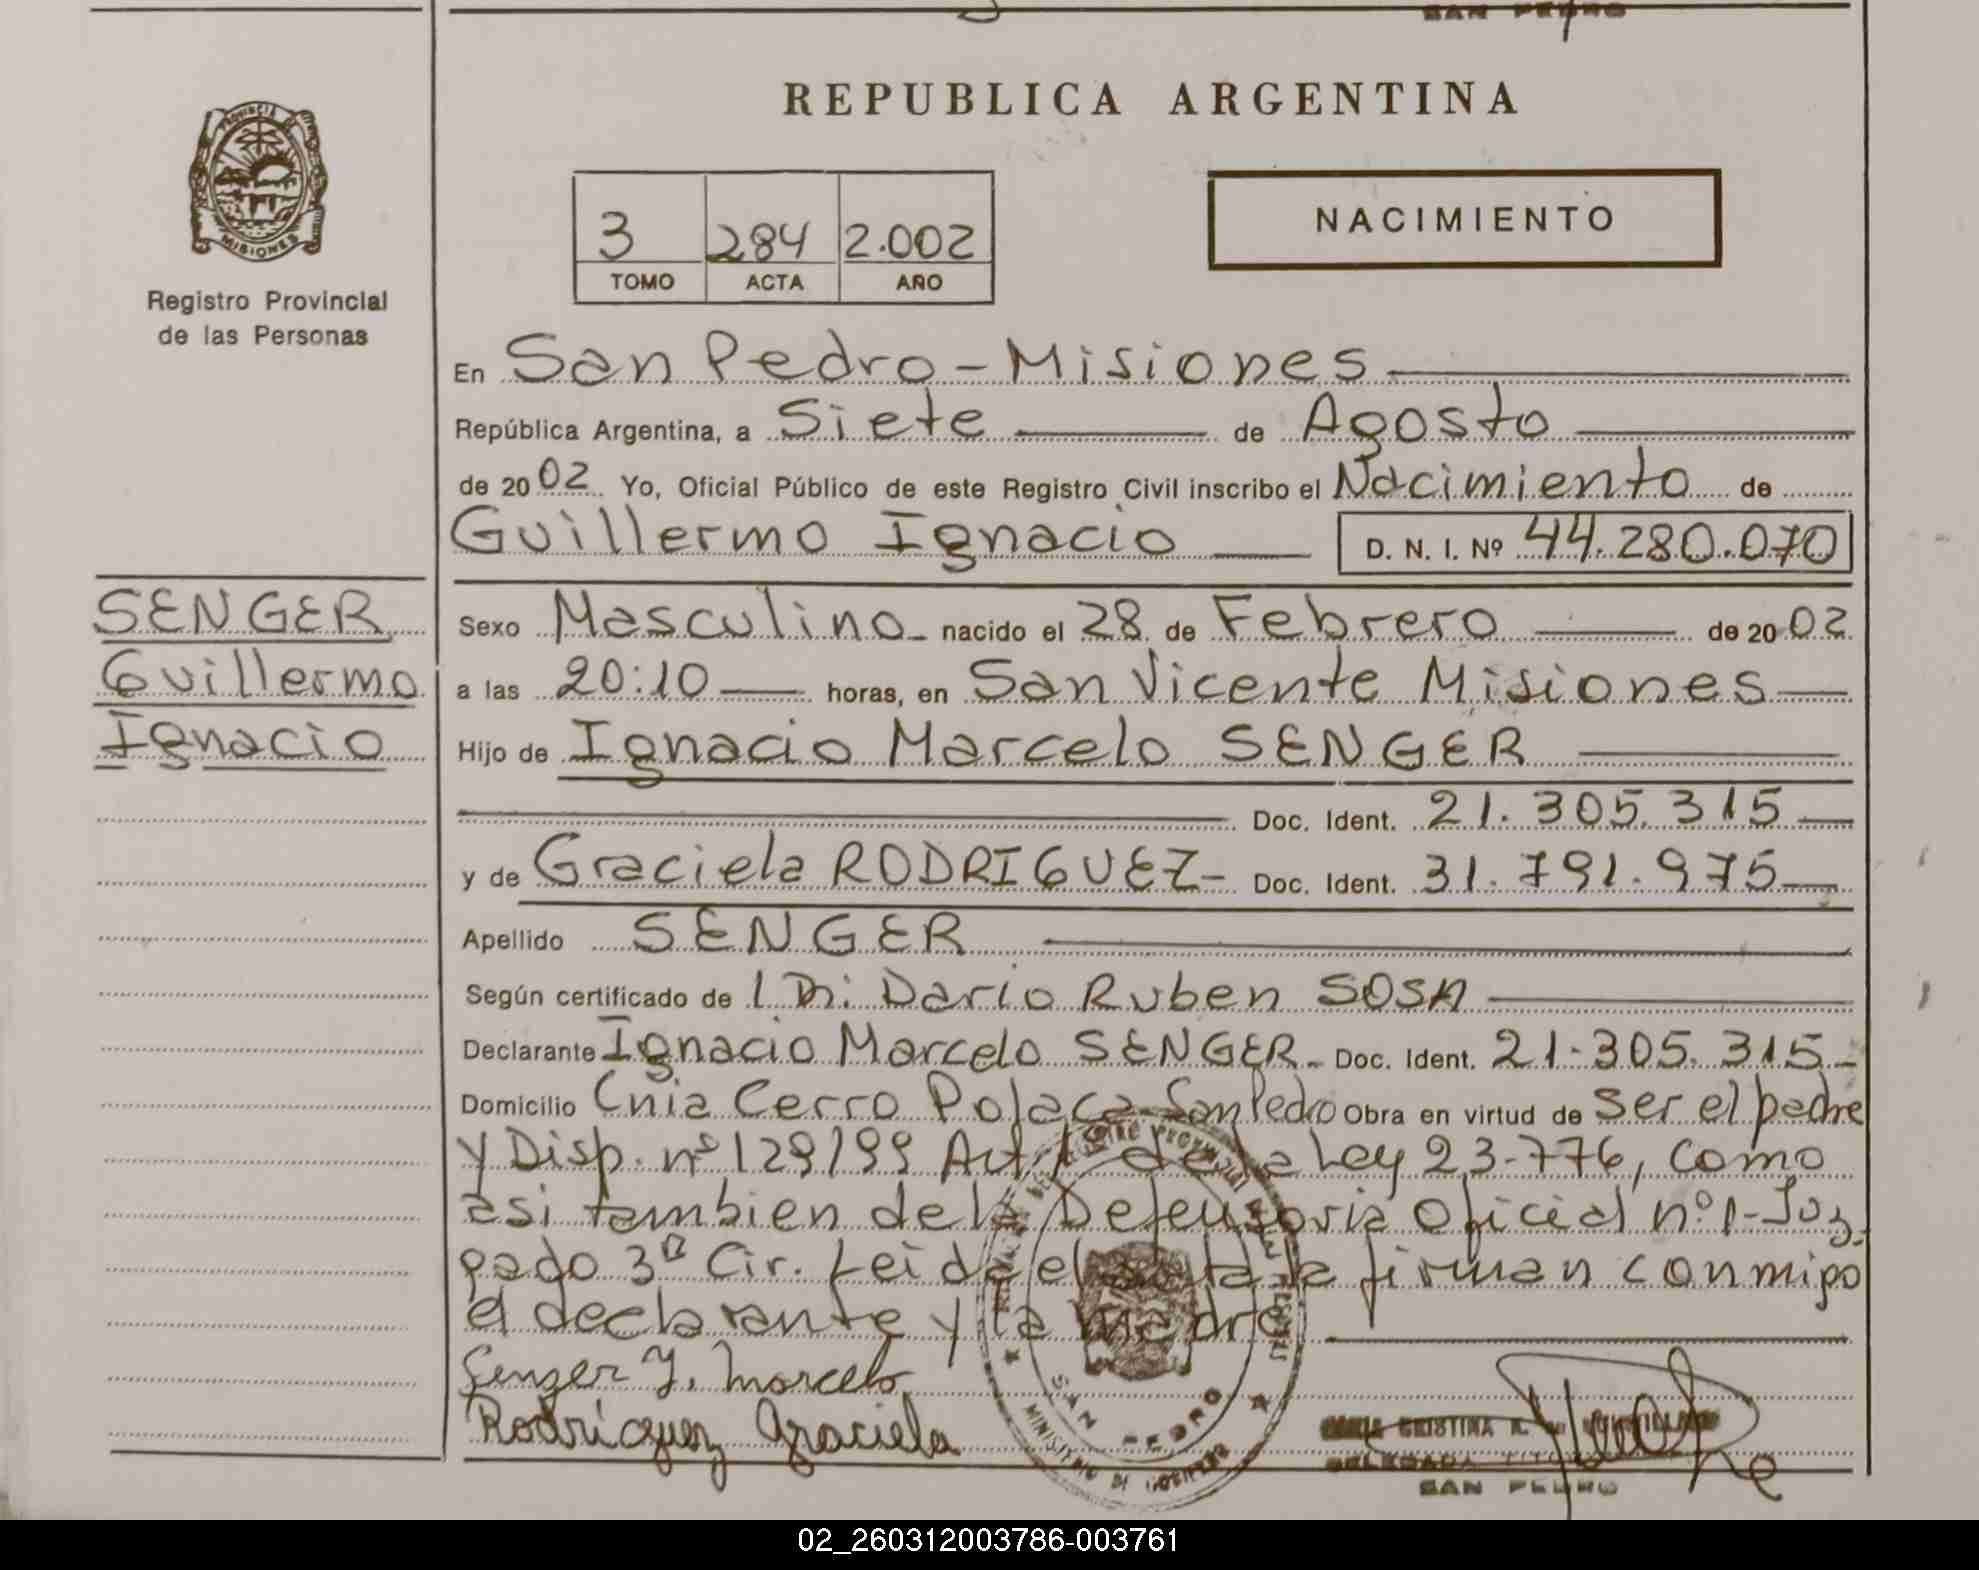 SAN PEDRO
REPUBLICA ARGENTINA
PROVINCIA DE
MISIONES
Registro Provincial
de las Personas
3 284 2.002
TOMO ACTA AÑO
NACIMIENTO
En San Pedro - Misiones
República Argentina, a Siete de Agosto
de 2002 Yo, Oficial Público de este Registro Civil inscribo el Nacimiento de
Guillermo Ignacio D. N. I. Nº 44.280.070
SENGER
Guillermo
Ignacio
Sexo Masculino nacido el 28 de Febrero de 2002
a las 20:10 horas, en San Vicente Misiones
Hijo de Ignacio Marcelo SENGER
Doc. Ident. 21.305.315
y de Graciela RODRIGUEZ - Doc. Ident. 31.791.975
Apellido SENGER
Según certificado de Dario Ruben SOSA
Declarante Ignacio Marcelo SENGER - Doc. Ident. 21.305.315
Domicilio Cnia Cerro Polaca San Pedro Obra en virtud de ser el padre
y Disp. nº 129/99 Art. 1 de la Ley 23.776, como
asi tambien de la Defensoria Oficial nº 1 - Juz
gado 3ª Cir. Leida el acta la firman conmigo
el declarante y la madre
Senger I. Marcelo
Rodriguez Graciela
SAN PEDRO
MINISTERIO DE GOBIERNO
CRISTINA
DELEGADA
SAN PEDRO
02_260312003786-003761